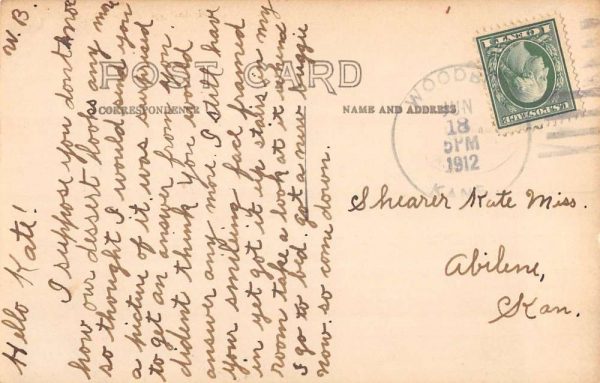 W. B.
Hello Kate!
I suppose you don't know
how our dessert looks any mo
so thought I would send you
a picture of it. was surprised
to get an answer from you.
dident think you would
answer any more. I still have
your smiling face framed
in yet got it up stalis in my
room take a look at it when
I go to bd. got a new buggie
now so come down.
POST CARD
CORRESPONDENCE
NAME AND ADDRESS
WOODB
JUN
18
5PM
1912
KANS.
U.S. POSTAGE
1 CENT 1
Shearer Kate Miss.
Abilene,
Kan.